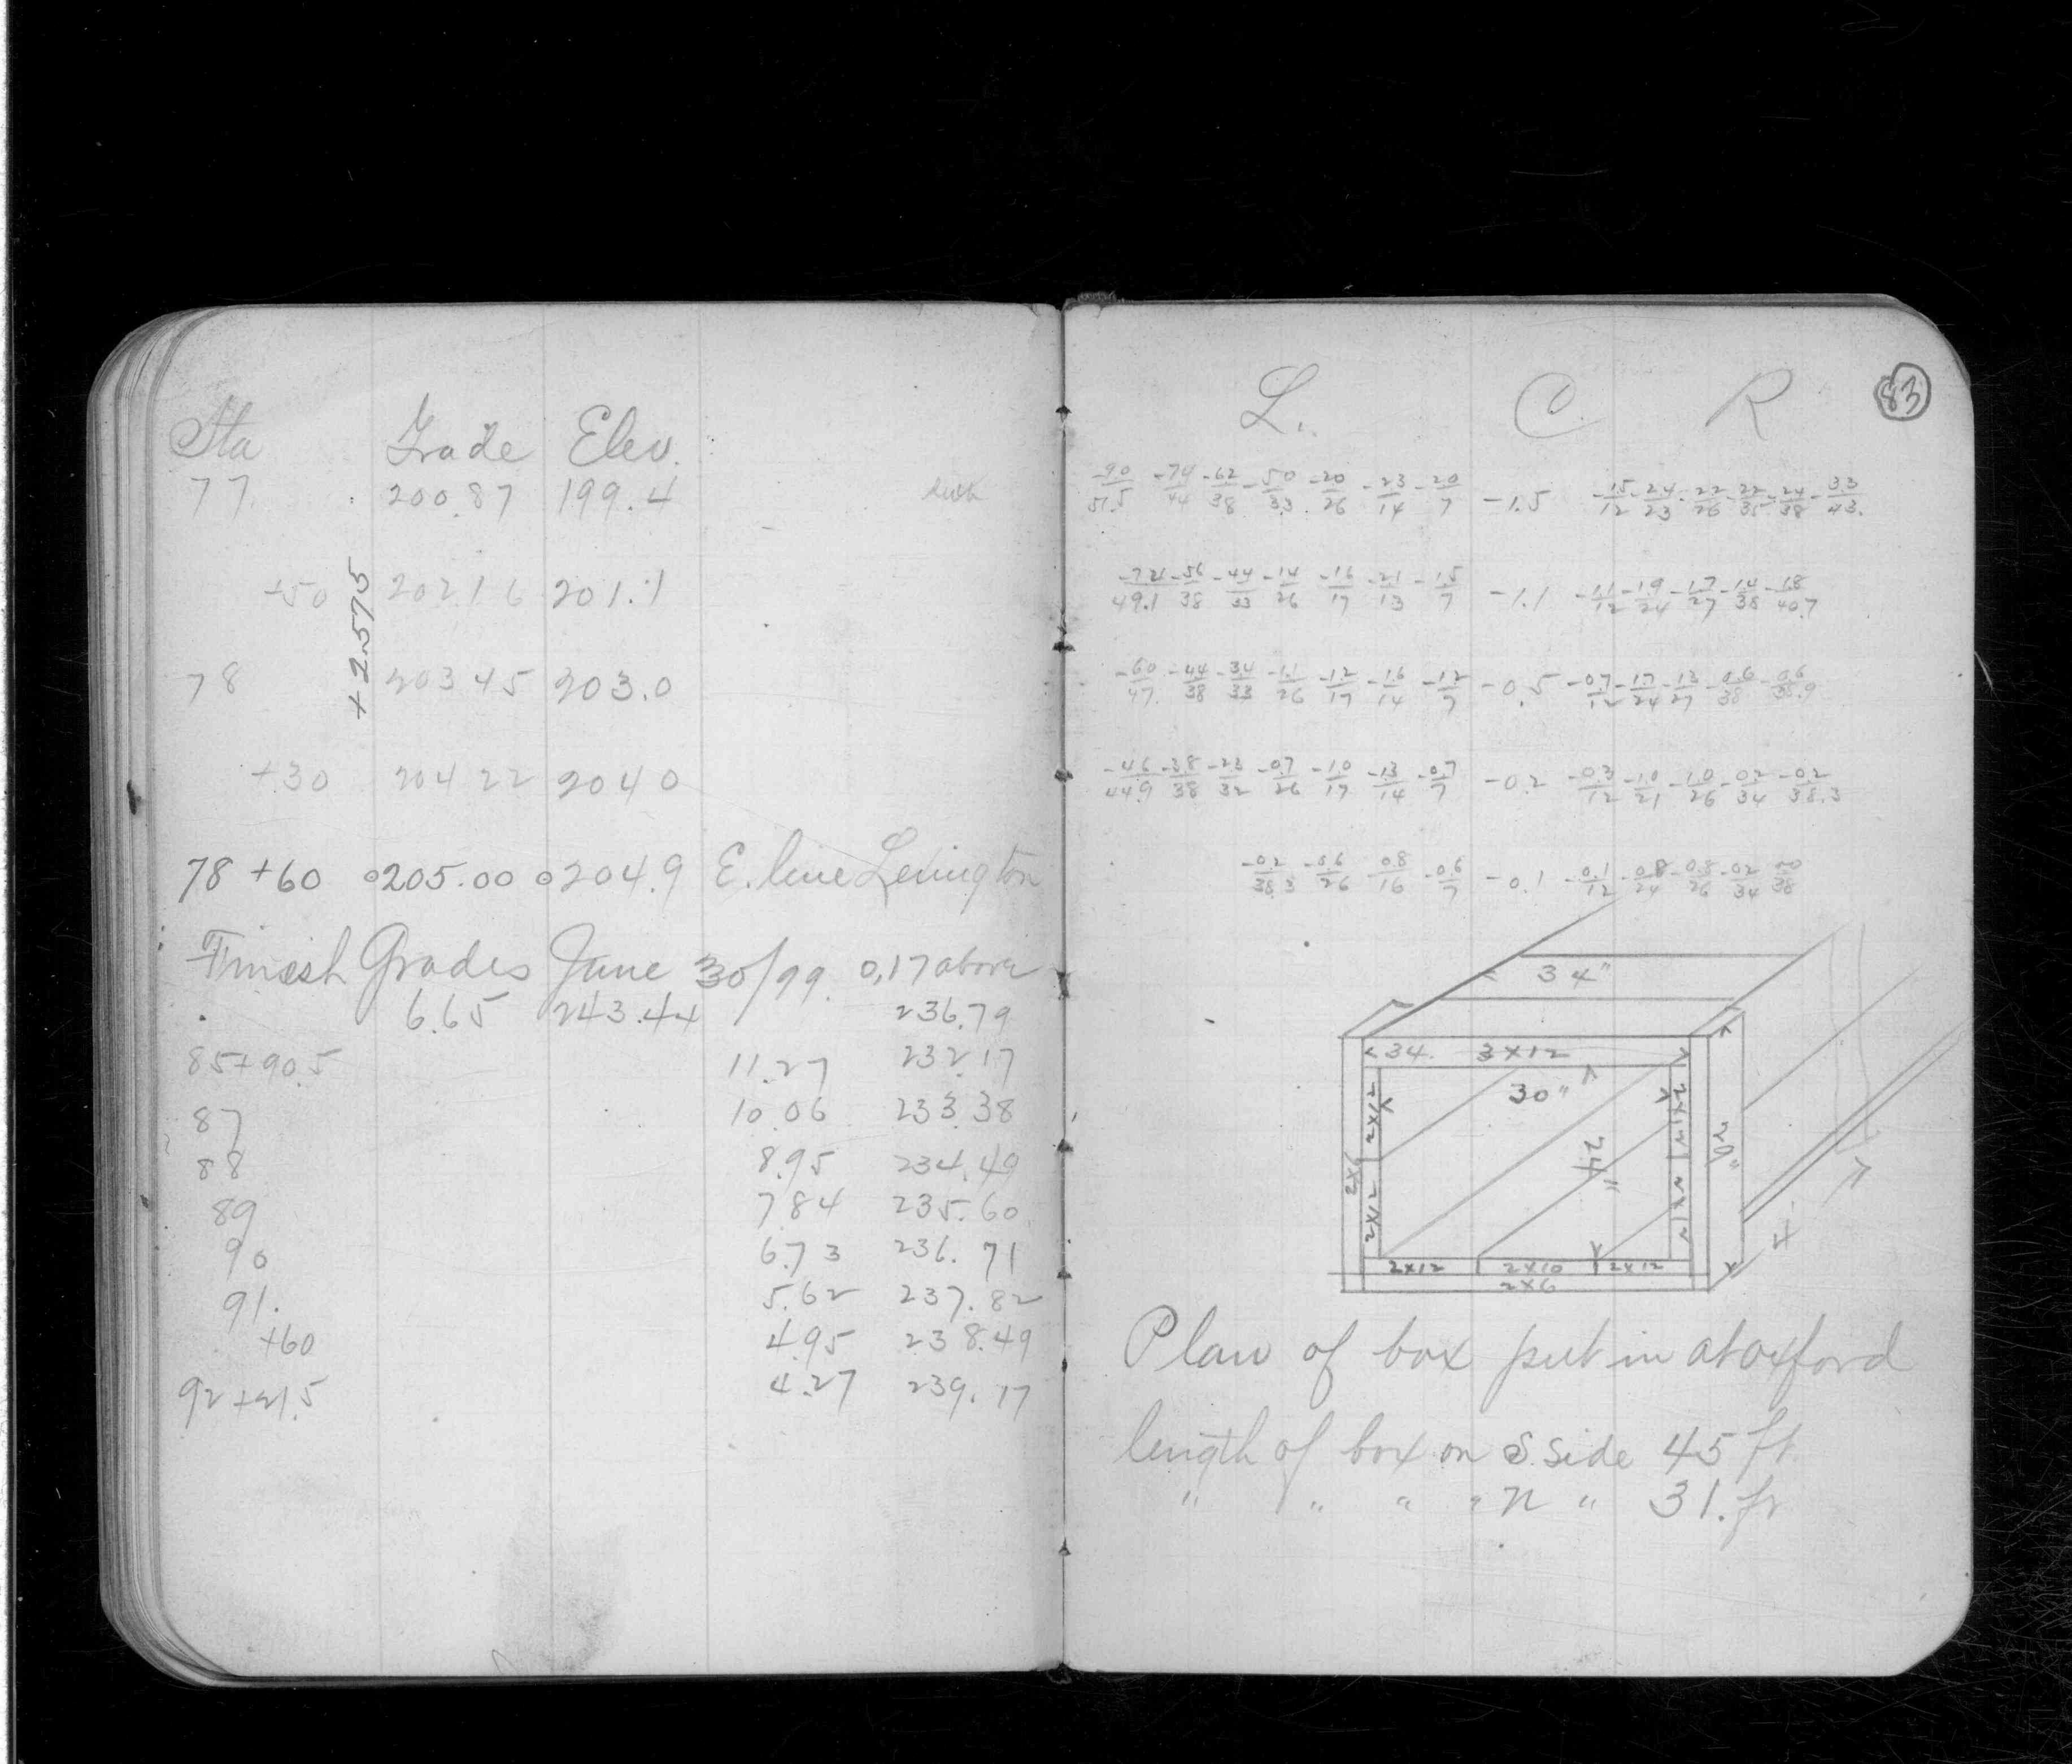 Sta Grade Elev.
77 200.87 199.4
+50 202.16 201.1
+2.575
78 203 45 203.0
+30 204 22 204 0
78 +60 205.00 204.9 E. line Lexington
Finish Grades June 30/99. 0,17 above
6.65 243.44 236.79
85+90.5 11.27 232.17
87 10.06 233.38
88 8.95 234.49
89 7.84 235.60
90 6.73 236.71
91. 5.62 237.82
+60 4.95 238.49
92+21.5 4.27 239.17
83
L. C R
-90/51.5 -74/44 -62/38 -50/33 -20/26 -23/14 -20/7 -1.5 -15/12 -24/23 -22/26 -22/35 -24/38 -33/43.
-56/38 -44/33 -14/26 -16/17 -21/13 -1.5/7 -1.1 -1.1/12 -1.9/24 -1.7/27 -14/38 -18/40.7
-60/47. -44/38 -3.4/33 -1.1/26 -1.2/17 -1.6/14 -1.2/7 -0.5 -0.7/12 -1.7/24 -1.3/27 -0.6/38 -0.6/38.9
-4.6/44.9 -3.8/38 -23/32 -0.7/26 -1.0/17 -1.3/14 -0.7/7 -0.2 -0.3/12 -1.0/21 -1.0/26 -0.2/34 -0.2/38.3
-0.2/38.3 -0.6/26 -0.8/16 -0.6/7 -0.1 -0.1/12 -0.8/24 -0.8/26 -0.2/34 00/38
34"
34. 3x12
30"
2x12
24"
2x6
2x12
2x12 2x10 2x12
2x6
Plan of box put in at oxford
length of box on S. side 45 ft.
" " " " N " 31. ft